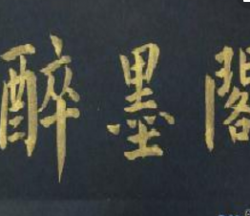 醉墨閣